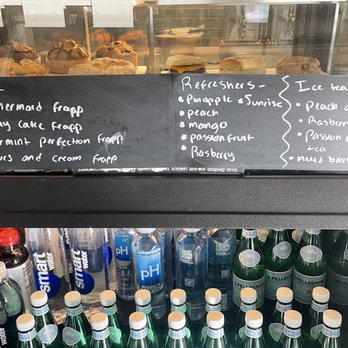 ermaid frapp
ay cake frapp
ermint perfection frapp
ies and cream frapp
Refreshers -
• Pinapple & Sunrise
• peach
• mango
• passion fruit
• Rasberry
Ice tea
• Peach
• Rasberry
• Passion
tea
• mixed berr
shown are for display only.
smart
smart
pH
pH